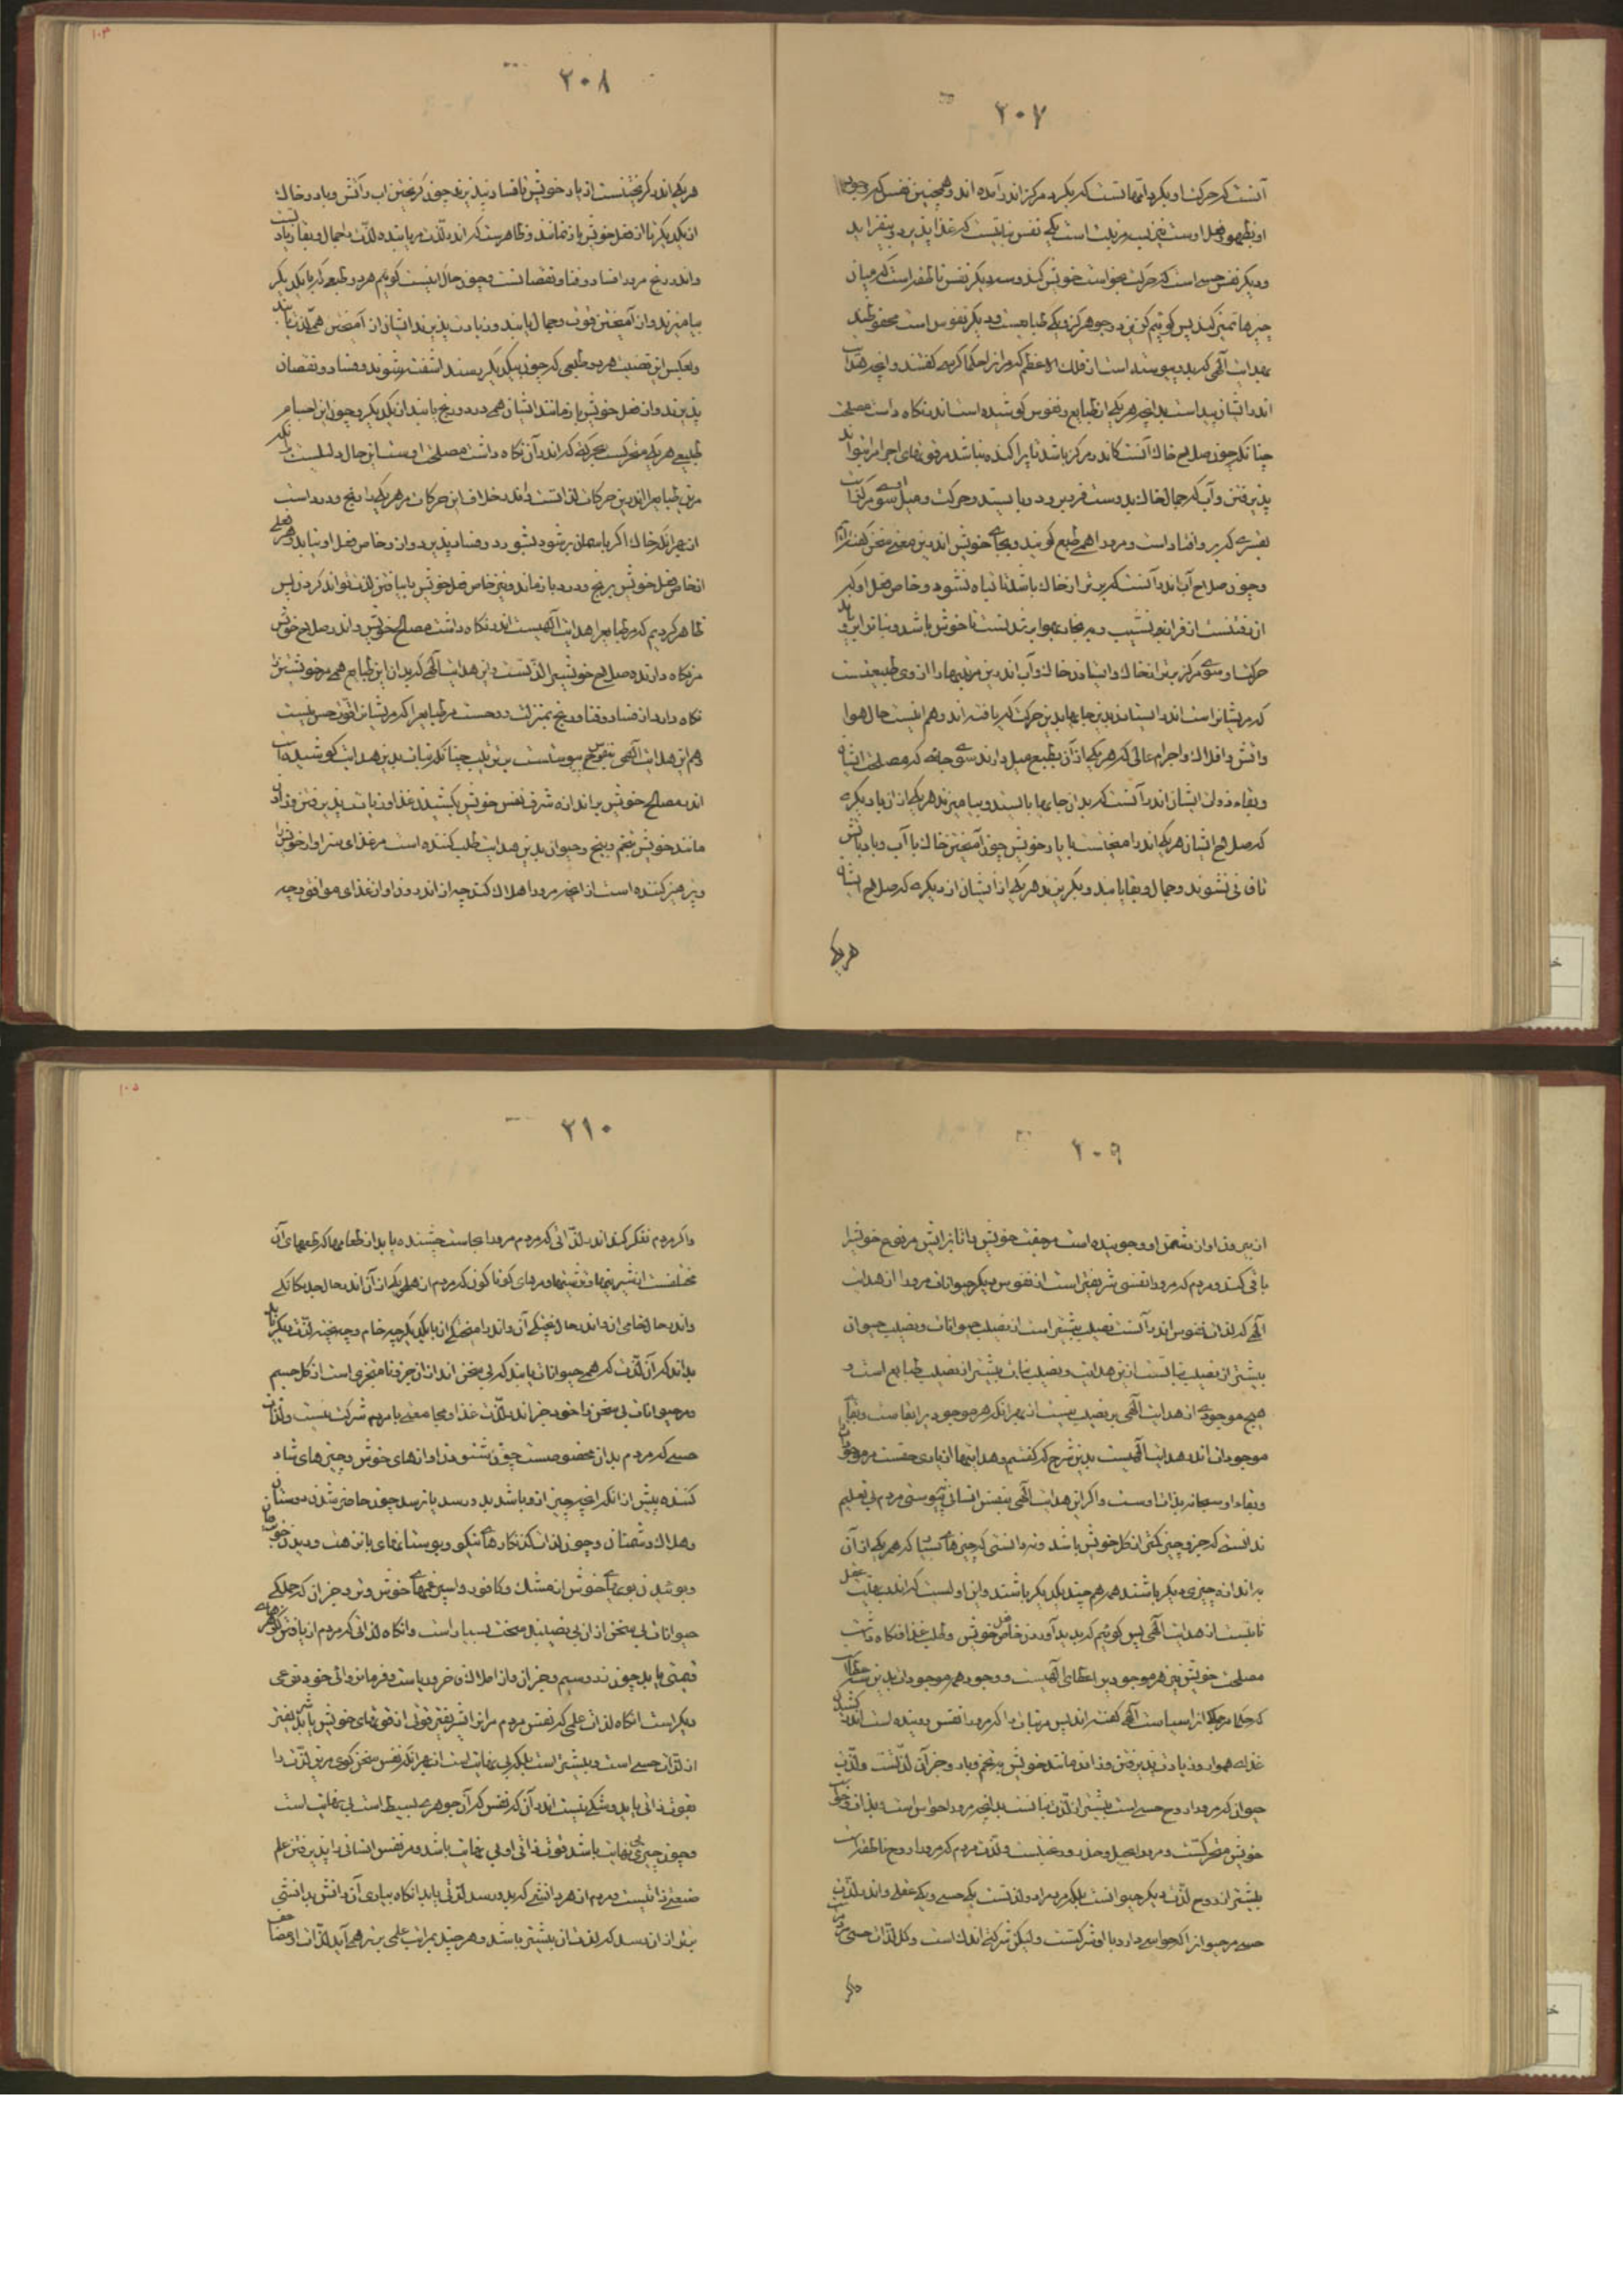 ۲۰۷
آنست که حرکت او بگرد امهاتست که بگرد مرکز اندر آمده اند و همچنین نفس که وجود
او بظهور فعل اوست بترتیب مرتبت است یکی نفس نباتیست که غذا پذیرد و بیفزاید
و دیگر نفس حسی است که حرکت بخواست خویش کند و سه دیگر نفس ناطقه است که میان
چیزها تمیز کند پس گوئیم کزین دو جوهر کزو یکی طبایعست و دیگر نفوس است محفوظند
بهدایت الهی که بدو پیوسته است از فلک الاعظم که مر انرا حکما کرسی گفتند و انچه هدایت
اندر ایشان پیداست بدانچه هر یکی از طبایع و نفوس کوشنده است اندر نگاه داشت مصلحت
چنانکه چون صلاح خاک آنست کاندر مرکز باشد تا پراکنده نباشد مر قوتهای اجرام را بتواند
پذیرفتن و آب که جمال خاک بدوست فرمیرود و بایستد و حرکت و میل سوی مرکز است
بقسری که برو افتاد است و مرورا همی طبع گویند و بجای خویش اندرین معنی سخن گفته‌ایم
و چون صلاح آب اندر آنست که برتر از خاک باشد تا تباه نشود و خاص فعل او که
ان رفتنست از فراز بنشیب و بر بخار بهوا برشدنست تا خوش باشد و نبات را پرورد
حرکت او سوی مرکز برتر از خاک و ایستادن خاک و آب اندرین مرتبتها را از وی طبیعیست
که مریشانراست اندر ایستادن بدین جایها بدین حرکت که یافته اند و هم اینست حال هوا
و اتش و افلاک و اجرام عالی که هر یکی از آن بطبع میل دارند سوی جائی که مصلحت ایشان
و بقاء ذوات ایشان اندر آنست که بدان جایها بایستند و بیامیزند هر یکی از ان با دیگری
که صلاح ایشان هر یکی اندر امیختنست با یار خویش چون آمیختن خاک با آب و باد باتش
تا فانی نشوند و جمال و بقا یابند و بگریزند هر یکی از ایشان از دیگری که صلاح ایشان
هر یکی
۲۰۸
هر یکی اندر گریختنست از یار خویش تا فساد نپذیرند چون گریختن اب و آتش و باد و خاک
از یکدیگر تا از فعل خویش باز نمانند و ظاهرست که اندر لذت مر یابنده لذت را جمال و بقا و زیادتست
و اندر رنج مرورا فساد و فنا و نقصانست و چون حال اینست گوئیم هر دو طبعی که با یکدیگر
بیامیزند و از آمیختن قوت و جمال یابند و زیادت پذیرند ایشان از آمیختن همی لذت یابند
و بعکس این قضیت هر دو طبعی که چون بیکدیگر رسند اشفته شوند و فساد و نقصان
پذیرند و از فعل خویش باز مانند ایشان همی درد و رنج یابند از یکدیگر و چون این اجسام
طبیعی هر یکی متحرکست بحرکتی که اندر آن نگاه داشت مصلحت اوست این حال دلیلست بر آنکه
مرین طبایع را اندرین حرکات لذاتست و اندر خلاف این حرکات مر هر یکی را رنج و درد است
از بهر آنکه خاک اگر باسمان برشود بشورد و فساد پذیرد و از و خاص فعل او نیاید و هر فعلی
از خاص فعل خویش برنج و درد باز ماند و نیز خاص فعل خویش با نیافتن لذت نتواند کردن پس
ظاهر کردیم که مر طبایع را هدایت آلهیست اندر نگاه داشت مصالح خویش و اندر صلاح خویش
مر نگاه دارنده صلاح خویش را لذتست و این هدایت الهی که بدان این طبایع همی مر خویشتن را
نگاه دارد از فساد و فنا و رنج بمنزلت روحست مر طبایع را که مریشانرا قوت حس نیست
و هم این هدایت الهی بنفوس پیوستست بترتیب چنانکه نبات بدین هدایت کوشیده است
اندر مصالح خویش بر اندازه شرف نفس خویش بکشیدن غذا و زیادت پذیرفتن و زادن
مانند خویش بتخم و بیخ و حیوان بدین هدایت طلب کننده است مر غذای سزاوار خویش را
و پرهیز کننده است از انچه مرورا هلاک کند چه از اندرون او از غذای موافق و چه
۲۰۹
از بیرون او از دشمن او و جوینده است مر جفت خویش را تا بزایش مر نوع خویش را
باقی کند و مردم که مرورا نفسی شریفتر است از نفوس دیگر حیوانات مرورا از هدایت
الهی که لذات نفوس اندر آنست نصیب بیشتر است از نصیب حیوانات و نصیب حیوان
بیشتر از نصیب نباتست ازین هدایت و نصیب نبات بیشتر از نصیب طبایع است و
هیچ موجودی از هدایت آلهی بی نصیب نیست از بهر انکه هر موجودی را بقاست و بقای
موجودات اندر هدایت الهیست بدین شرح که گفتیم و هدایتها از باری حقست مر موجودات را
و بقاء او سبحانه بذات اوست و اگر این هدایت الهی بنفس انسانی نپیوستی مردم بی تعلیم
ندانستی که جزو چیز کمتر از کل خویش باشد و نه دانستی که چیزهای بسیار که هر یکی از آن
بر اندازه چیزی دیگر باشند همه هم چند یکدیگر باشند و این اولیست که اندر بدایت عقل
ثابتست از هدایت الهی پس گوئیم که پدید آوردن خاص فعل خویش و طلب غذا و نگاه داشت
مصلحت خویشتن هر موجودی را عطای آلهیست و وجود همه موجودات بدین عطاست
که حکما مر جملگی انرا سیاست الهی گفته اند پس مر نبات را که مرورا نفس روینده است اندر کشیدن
غذای هموار و زیادت پذیرفتن و زادن مانند خویش بتخم و بار و جز آن لذتست و لذت
حیوان که مرورا روح حسی است بیشتر از لذت نباتست بدانچه مرورا حواس است و بذات و خواست
خویش متحرکست و مرورا میل و حذر و رغبتست و لذت مردم که مرورا روح ناطقه است
بیشتر از روح لذت دیگر حیوانست بلکه مردم را دو لذتست یکی حسی و یکی عقلی و اندر لذت
حسی مر حیوانرا که حواس دارد با او شرکتست و لیکن شرکتی اندک است و کل لذات حسی مردم راست
واگر
۲۱۰
واگر مردم تفکر کند اندر لذاتی که مردم مرورا بحاست چشنده یابد از طعامها که طعمهای آن
مختلفست از شیرینیها و ترشیها و مزهای گوناگون که مردم از هر یکی از آن اندر حال جداگانگی
و اندر حال خامی ان و اندر حال پختگی آن و اندر امیختگی ان با یکدیگر چه خام و چه پخته لذت دیگر یابد
بداند که آن لذت که همی حیوانات یابند که بی سخن اند از ان جزوی نامتجزی است از کل جسم
و مر حیوانات بی سخن را خود جز اندر لذت غذا و مجامعت با مردم شرکت نیست و لذات
حسی که مردم بدان مخصوصست چون شنودن اوازهای خوش و چیزهای شاد
کننده پیش از انکه انچیز چیز ازو باشد بدو رسد یا نرسد چون حاضر شدن دوستان
و هلاک دشمنان و چون لذات کزنگارهای نیکو و بوستانهای با نزهت و دیدن خوبان
و بوئیدن بوی های خوش از مشک و کافور و اسپرغمهای خوش و تر و جز ان که جملگی
حیوانات بی سخن از ان بی نصیبند سخت بسیار است و انگاه لذاتی که مردم از یافتن گوهرهای
قیمتی یابد چون زر و سیم و جز ان و از املاک فاخر و ریاست و فرمانروائی خود نوعی
دیگر است انگاه لذات علمی که نفس مردم مر انرا شریفتر قوتی از قوتهای خویش یابد شریفتر
از لذات حسی است و بیشتر است بلکه بی نهایت است از بهر انکه نفس سخن گوی مرین لذت را
بقوت ذاتی یابد و شکی نیست اندر آن که نفس که آن جوهری بسیط است بی نهایت است
و چون چیزی بی نهایت باشد قوت ذاتی او بی نهایت باشد و مر نفس انسانی را پذیرفتن علم
صنعتی ذاتیست و مردم از هر دانشی که بدو رسد لذتی یابد انگاه بیاری آن دانش بدانشی
برتر از ان رسد که لذت ان بیشتر باشد و هر چند بمراتب علمی برتر همی آید لذات او مضاعف